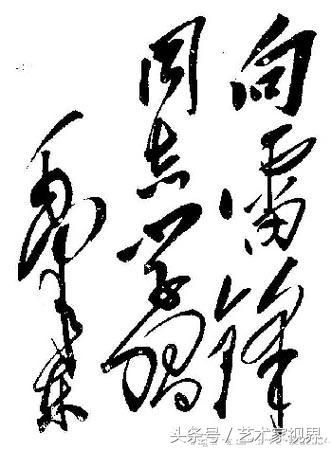 向雷锋
同志学习
毛泽东
头条号/艺术家视界